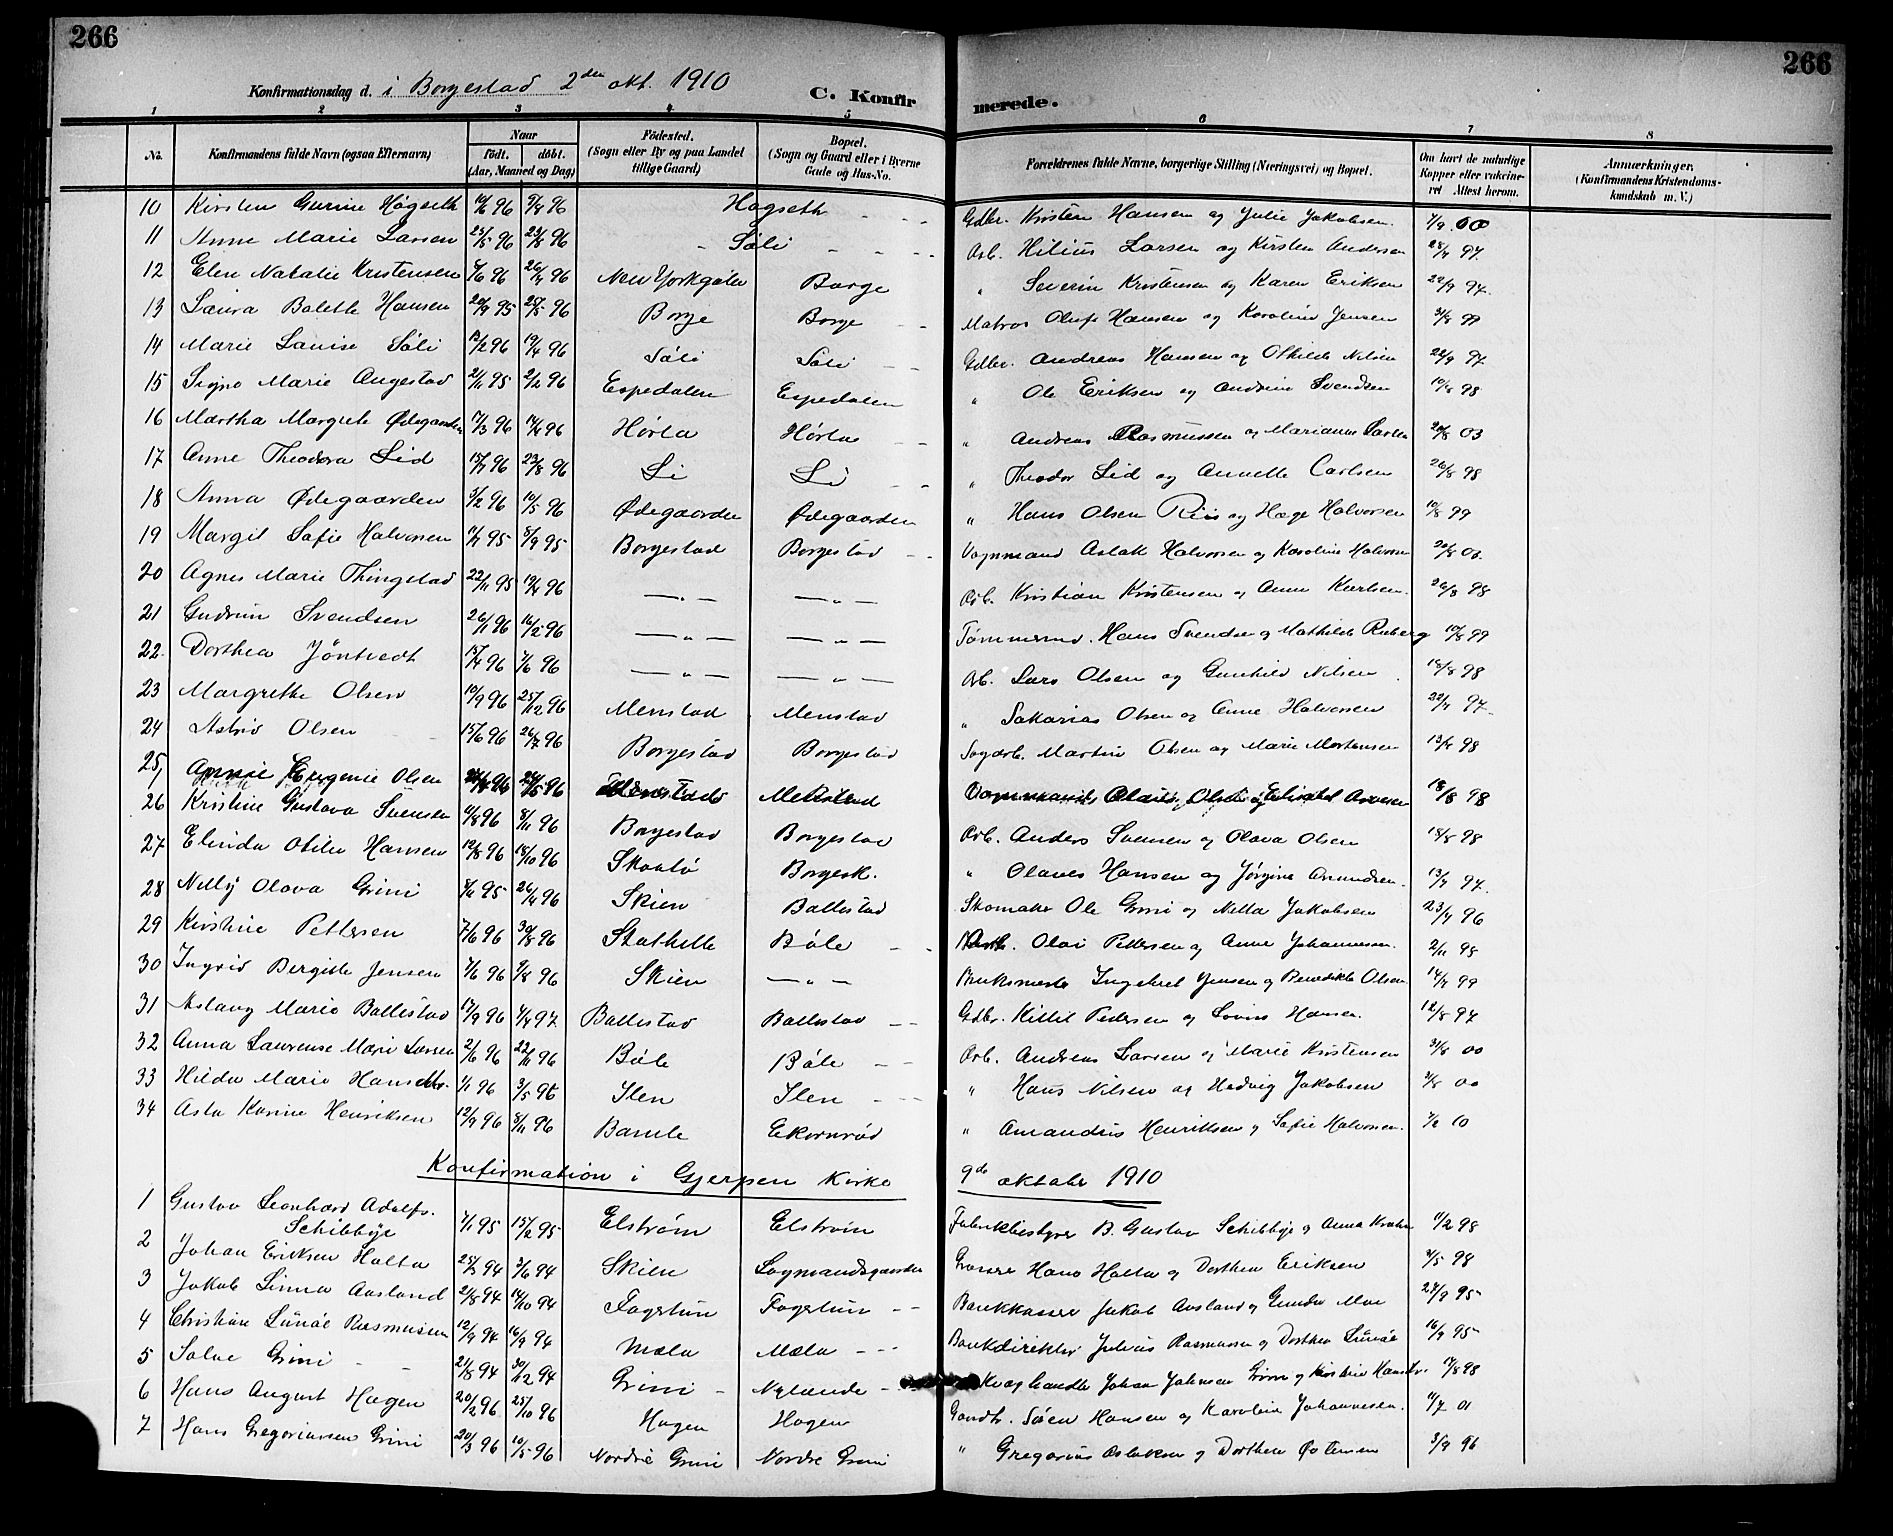 266
266
Konfirmationsdag d. i Borgestad 2den okt. 1910
C. Konfir
merede.
1 2 3 4 5 6 7 8
No.
Konfirmandens fulde Navn (ogsaa Efternavn)
Naar
født. døbt.
(Aar, Maaned og Dag)
Fødested.
(Sogn eller By og paa Landet
tillige Gaard)
Bopæl.
(Sogn og Gaard eller i Byerne
Gade og Hus-No.
Forældrenes fulde Navne, borgerlige Stilling (Næringsvei) og Bopæl.
Om havt de naturlige
Kopper eller vakcine-
ret Attest herom.
Anmærkninger,
(Konfirmandens Kristendoms-
kundskab m. V.)
10 Kirsten Gurine Høgseth 96 9/8 96 Høgseth Gdbr. Kristen Hansen og Julie Jakobsen 00
11 Anne Marie Larsen 25/5 96 23/8 96 Søli Arb. Hilius Larsen og Kirsten Andersen 97
12 Elen Natalie Kristensen 96 96 New Yorkgata Borge " Severin Kristensen og Karen Eriksen 22/9 97.
13 Laura Bolette Hansen 95 25/5 96 Borge Borge Matros Oluf Hansen og Karoline Jensen 99
14 Marie Louise Søli 12/2 96 19/4 96 Søli Søli Gdbr. Andreas Hansen og Othilde Nilsen 22/9 97
15 Signe Marie Augestad 95 2/2 96 Espedalen Espedalen " Ole Eriksen og Andrine Svendsen 98
16 Martha Margrete Ødegaarden 17/3 96 96 Hørta Hørta " Andreas Rasmussen og Marianne Larsen 03
17 Anne Theodora Lid 96 23/8 96 Li Li " Theodor Lid og Annette Carlsen 26/8 98
18 Anna Ødegaarden 3/2 96 10/5 96 Ødegaarden Ødegaarden " Hans Olsen Riis og Hæge Halvorsen 10/8 99
19 Margit Sofie Halvorsen 95 8/9 95 Borgestad Borgestad Vognmand Aslak Halvorsen og Karoline Halvorsen
20 Agnes Marie Thingstad 22/11 95 19/4 96 — " — — " — Arb. Kristian Kristensen og Anne Karlsen. 26/8 98
21 Gudrun Svendsen 26/1 96 16/2 96 — " — — " — Tømmerm. Hans Svendsen og Mathilde Ruberg 10/8 99
22. Dorthea Jøntvedt 15/4 96 96 — " — — " — Arb. Lars Olsen og Gunhild Nilsen 18/8 98
23 Margrethe Olsen 10/9 96 25/12 96 Menstad Menstad " Sakarias Olsen og Anne Halvorsen 97
24 Astrid Olsen 15/6 96 26/7 96 Borgestad Borgestad Sagarb. Martin Olsen og Marie Mortensen 98
25 Eugenie Olsen 96 96 Menstad Vognmand Olaus Olsen og 18/8 98
26 Kristine Gustava Svensen 11/8 96 8/11 96 Borgestad Borgestad Arb. Anders Svensen og Olava Olsen 18/8 98
27 Elinda Otilie Hansen 12/8 96 18/10 96 Skaatø Borgesk. " Olaves Hansen og Jørgine Amundsen. 97.
28 Nelly Olava Grini 95 26/4 96 Skien Ballestad Skomaker Ole Grini og Nella Jakobsen 96
29 Kirstine Pettersen 7/6 96 30/8 96 Stathelle Bøle Olai Pettersen og Anne Johannesen. 2/11 98
30 Ingrid Bergitte Jensen 96 9/8 96 Skien — " — Bruksmester Ingebret Jensen og Benedikte Olsen 99
31 Aslaug Marie Ballestad 17/9 96 97 Ballestad Ballestad Gdbr. Kittil Pedersen og Lovise Hansen. 12/8 97
32 Anna Laurense Marie Larsen 2/6 96 22/11 96 Bøle Bøle Arb. Andreas Larsen og Marie Kristensen 31/8 00
33 Hilda Marie 1/1 96 3/5 96 Ilen Ilen " Hans Nilsen og Hedvig Jakobsen 00
34 Asta Karine Henriksen 12/9 96 8/11 96 Bamle Ekornrød " Amandus Henriksen og Sofie Halvorsen. 10
Konfirmation i Gjerpen Kirke 9de oktober 1910
1 Gustav Leonhard Adolfs.
Schibbye 95 15/2 95 Elstrøm Elstrøm Fabrikbestyrer B. Gustav Schibbye og Anna 11/2 98
2 Johan Eriksen Holta 94 3/6 94 Skien Lagmandsgaarden Grosser Hans Holta og Dorthea Eriksen 98
3 Jakob Linna Aasland 21/8 94 14/10 94 Fagertun Fagertun Bankkasserer Jakob Aasland og Gunda Moe 95
4 Christian Lunøe Rasmussen 12/9 94 16/9 94 Mæla Mæla Bankdirektør Julius Rasmussen og Dorthea Lunøe 95
5 Solve Grini 21/8 94 30/12 94 Grini Nylænde Kvæghandler Johan Johnsen Grini og Kirstine 17/8 98
6 Hans August Hagen 20/2 96 25/10 96 Hagen Hagen Gaardbr. Søren Hansen og Karoline Johannesen. 11/7 01
7 Hans Gregoriussen Grini 20/3 96 10/5 96 Nordre Grini Nordre Grini " Gregorius Aslaksen og Dorthea Østensen 3/9 96